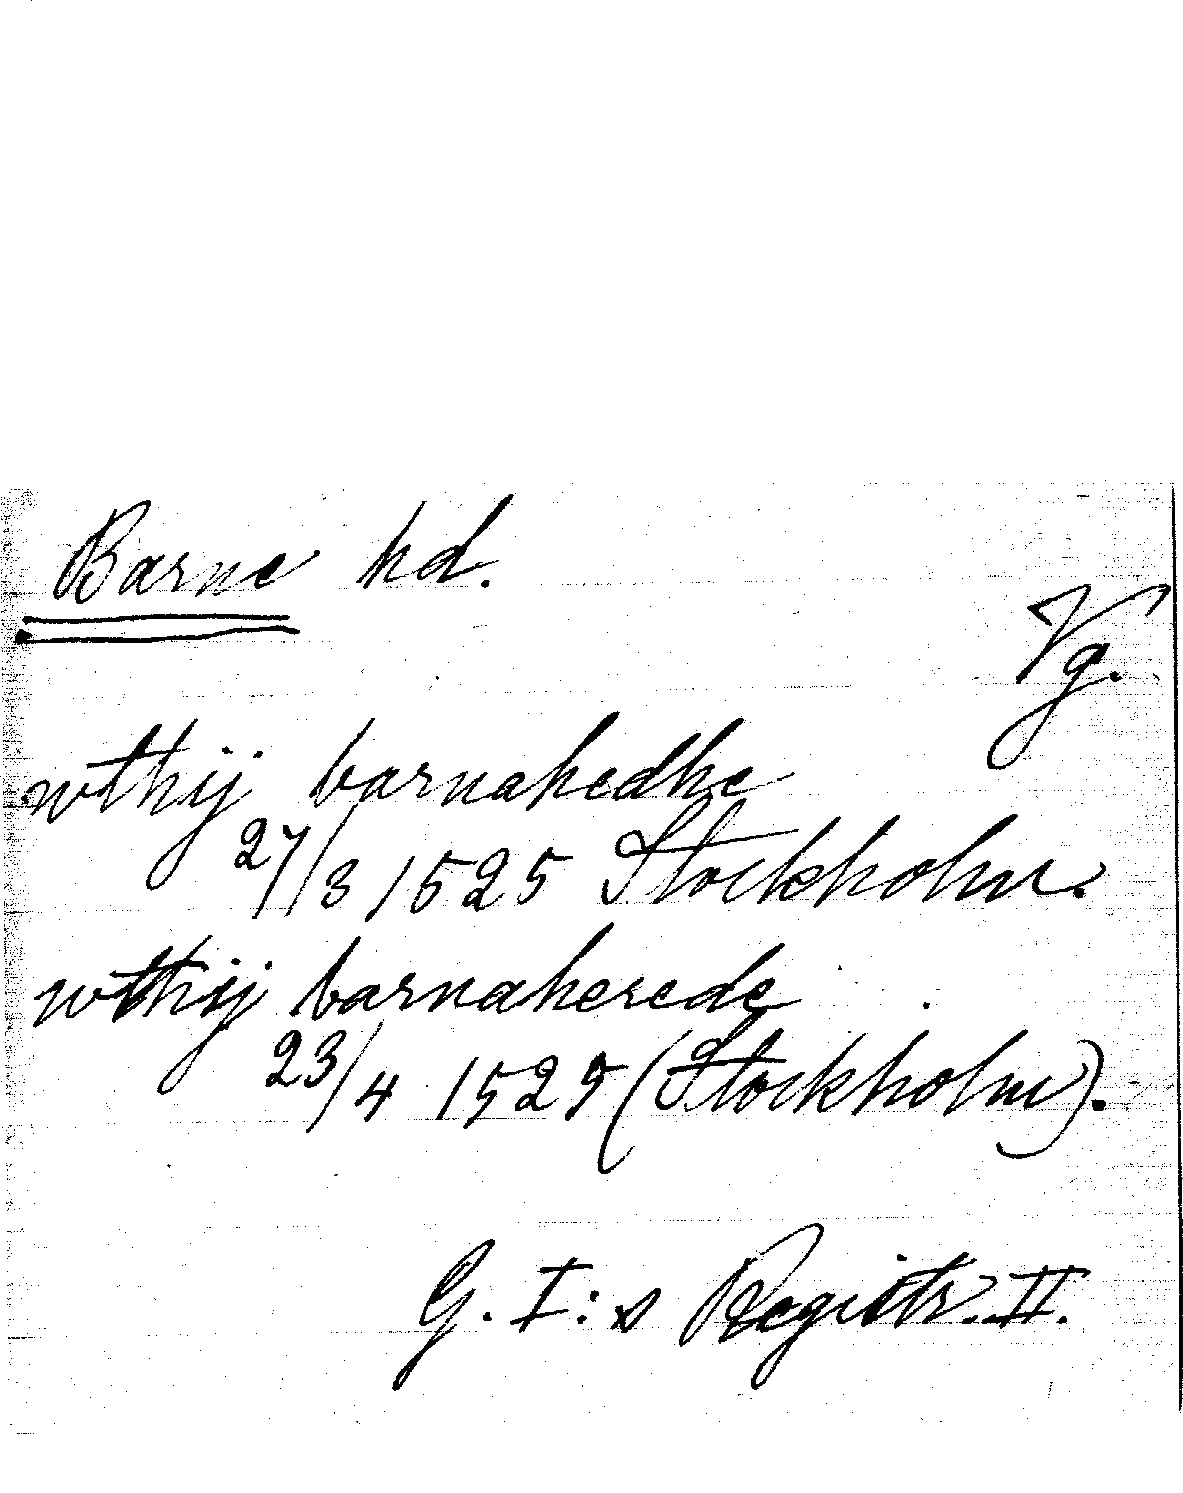 Barne hd.
Vg.
wthij barnahedhe
27/3 1525 Stockholm.
wthij barnaherede
23/4 1529 (Stockholm).
G. I:s Registr. II.